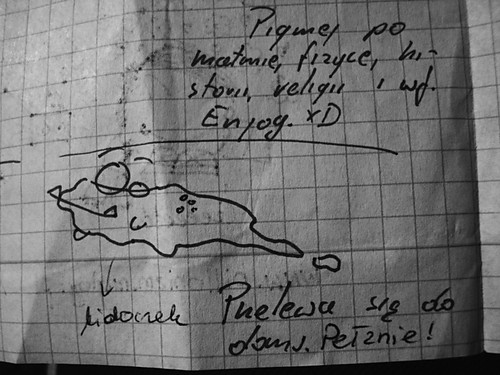 Pigmej po
matmie, fizyce, hi-
storii, religii i wf.
Enjoy. xD
Przelewa się do
domu. Pełznie!